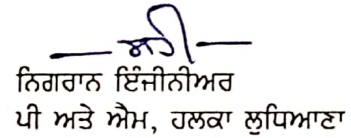 ਸਹੀ
ਨਿਗਰਾਨ ਇੰਜੀਨੀਅਰ
ਪੀ ਅਤੇ ਐਮ, ਹਲਕਾ ਲੁਧਿਆਣਾ